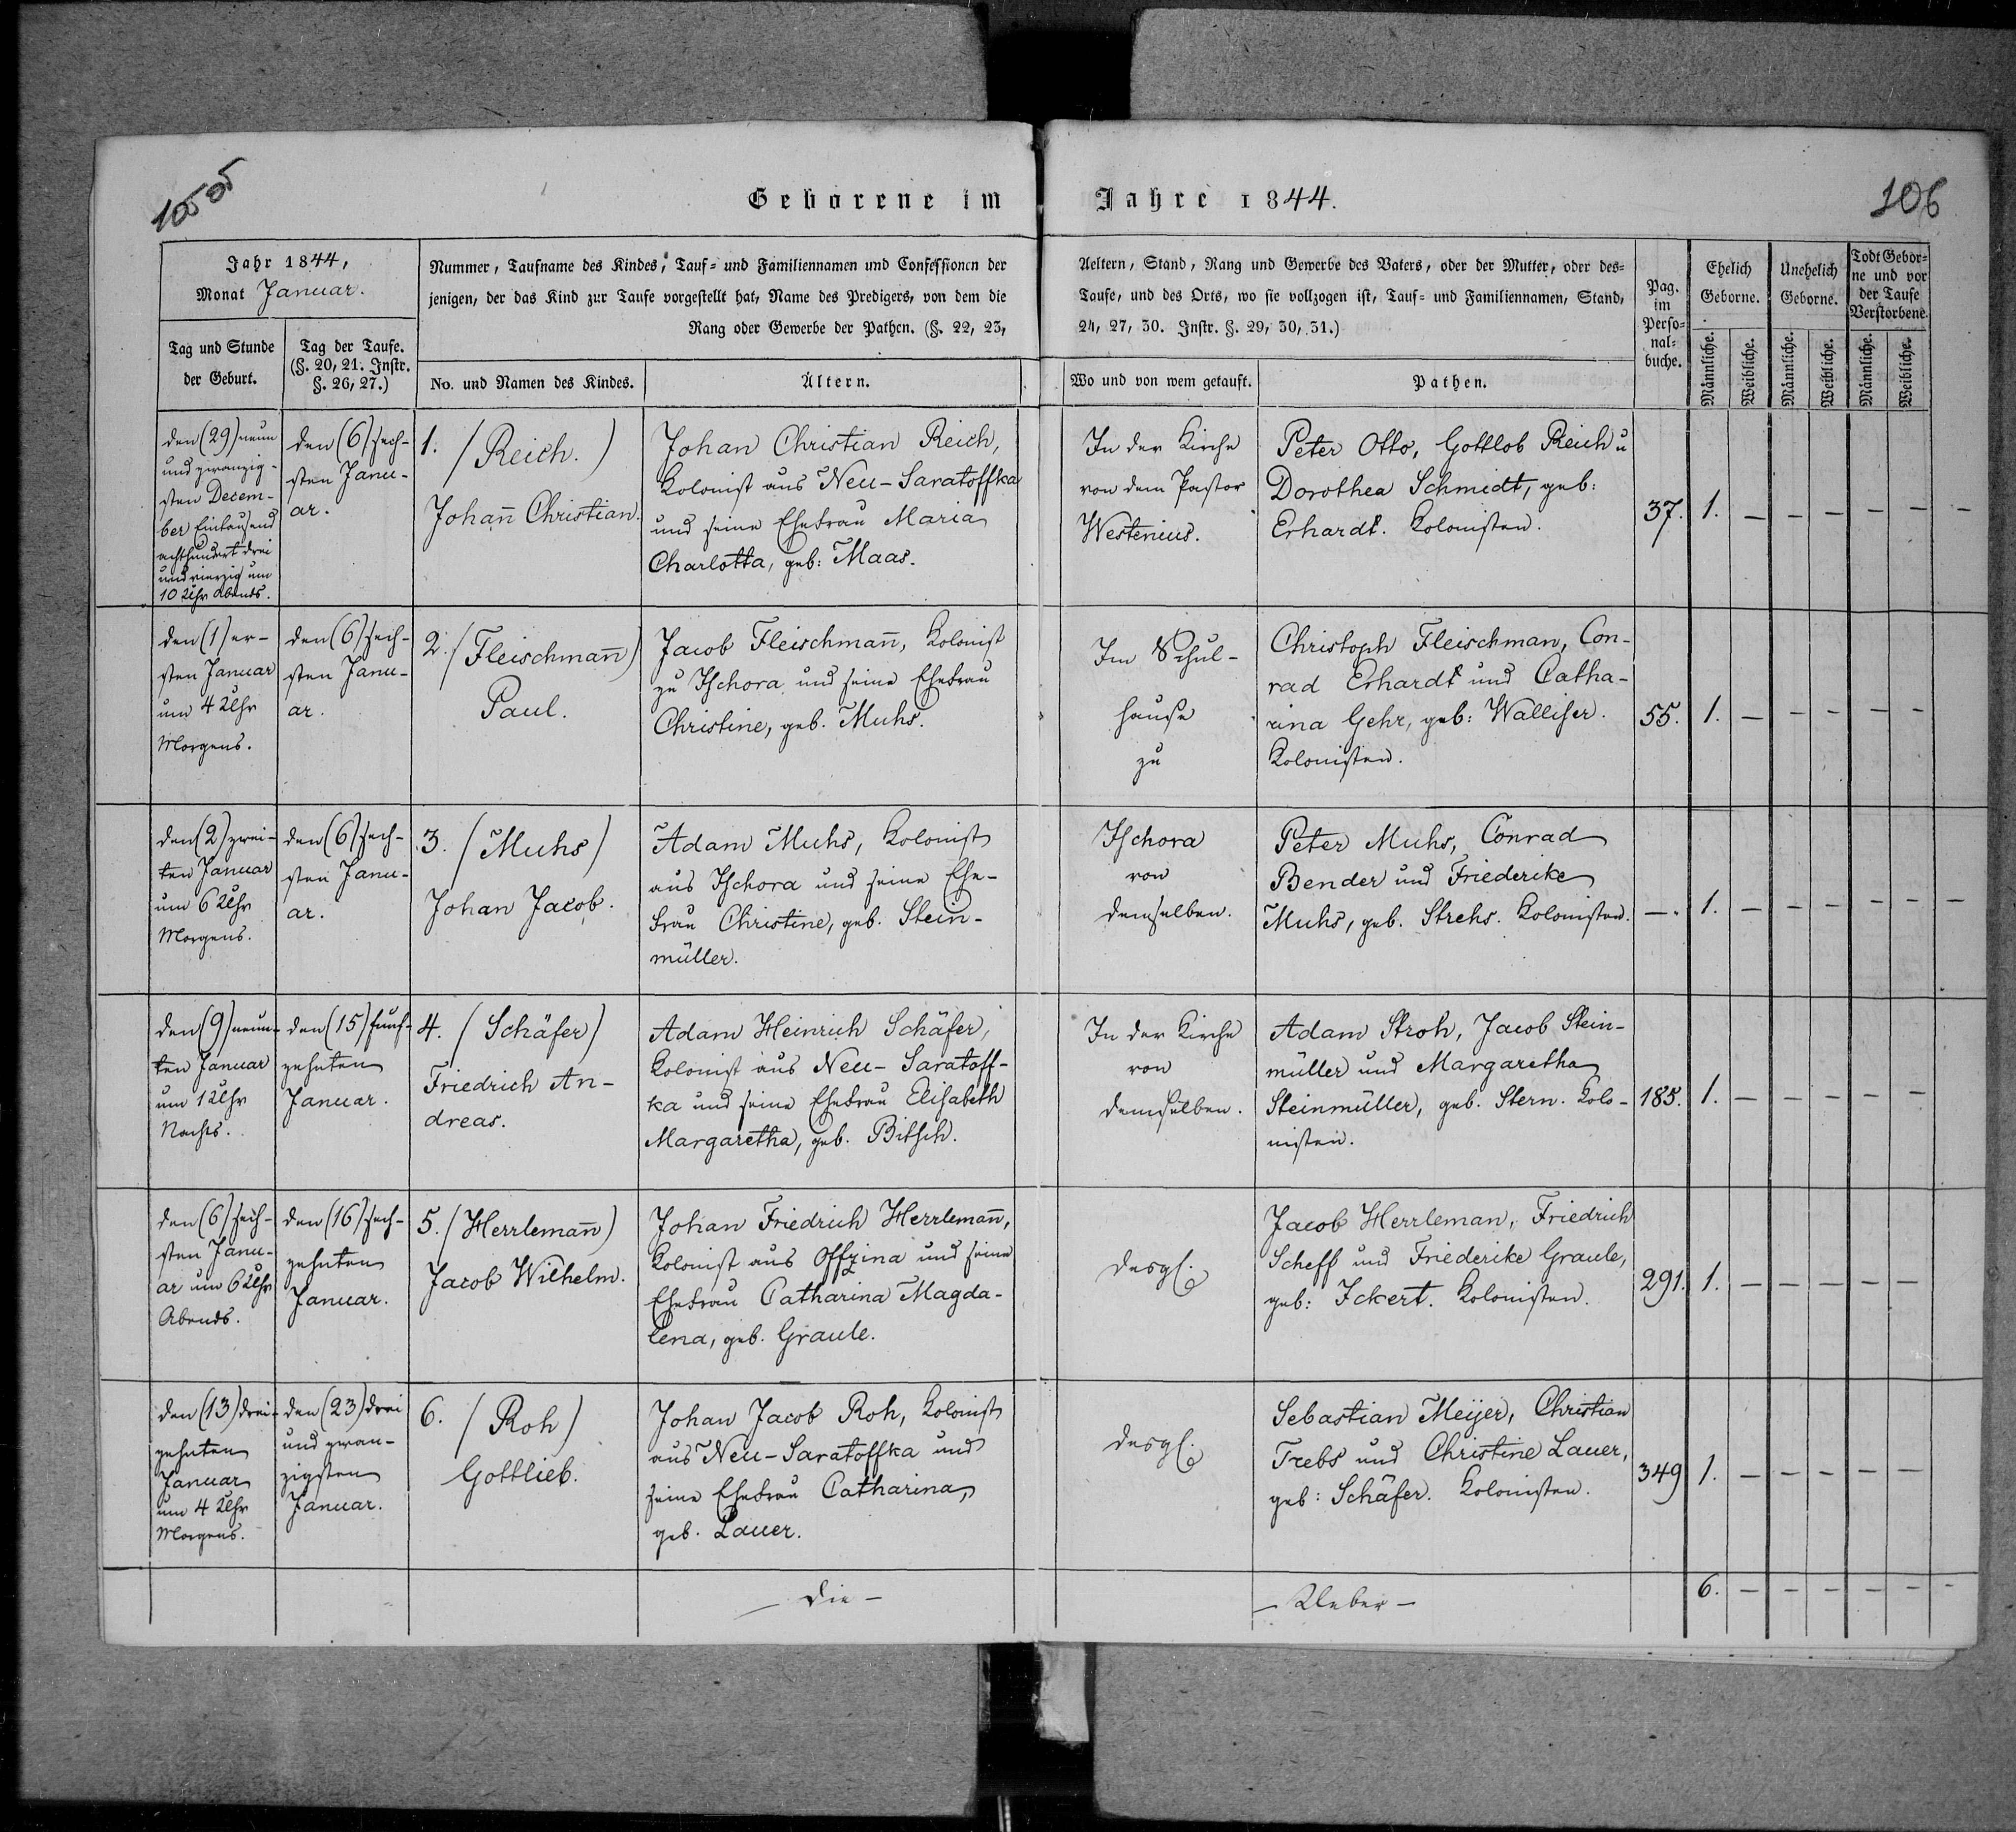 105 05
Geborene im Jahre 1844.
106
Jahr 1844,
Monat Januar.
Tag und Stunde
der Geburt.
Tag der Taufe.
(§. 20, 21. Instr.
§. 26, 27.)
Nummer, Taufname des Kindes, Tauf- und Familiennamen und Confessionen der
jenigen, der das Kind zur Taufe vorgestellt hat, Name des Predigers, von dem die
Rang oder Gewerbe der Pathen. (§. 22, 23,
No. und Namen des Kindes.
Ältern.
Aeltern, Stand, Rang und Gewerbe des Vaters, oder der Mutter, oder des-
Taufe, und des Orts, wo sie vollzogen ist, Tauf- und Familiennamen, Stand,
24, 27, 30. Instr. §. 29, 30, 31.)
Wo und von wem getauft.
Pathen.
Pag.
im
Perso-
nal-
buche.
Ehelich
Geborne.
Unehelich
Geborne.
Todt Gebor-
ne und vor
der Taufe
Verstorbene.
Männliche.
Weibliche.
Männliche.
Weibliche.
Männliche.
Weibliche.
den (29) neun
und zwanzig-
sten Decem-
ber Eintausend
achthundert drei
und vierzig um
10 Uhr Abends.
den (6) sech-
sten Janu-
ar.
1. (Reich.)
Johan̄ Christian.
Johan Christian Reich,
Kolonist aus Neu-Saratoffka
und seine Ehefrau Maria
Charlotta, geb: Maas.
In der Kirche
von dem Pastor
Westenius.
Peter Otto, Gottlob Reich u
Dorothea Schmidt, geb:
Erhardt. Kolonisten.
37. 1. — — — — — —
den (1) er-
sten Januar
um 4 Uhr
Morgens.
den (6) sech-
sten Janu-
ar.
2. (Fleischman̄)
Paul.
Jacob Fleischman̄, Kolonist
zu Ischora und seine Ehefrau
Christine, geb. Muhs.
Im Schul-
hause
zu
Christoph Fleischman, Con-
rad Erhardt und Catha-
rina Gehr, geb: Walliser.
Kolonisten.
55. 1. — — — — —
den (2) zwei-
ten Januar
um 6 Uhr
Morgens.
den (6) sech-
sten Janu-
ar.
3. (Muhs)
Johan Jacob.
Adam Muhs, Kolonist
aus Ischora und seine Ehe-
frau Christine, geb. Stein-
müller.
Ischora
von
demselben.
Peter Muhs, Conrad
Bender und Friederike
Muhs, geb. Strehs. Kolonisten.
—. 1. — — — — — —
den (9) neun-
ten Januar
um 1 Uhr
Nachts.
den (15) funf-
zehnten
Januar.
4. (Schäfer)
Friedrich An-
dreas.
Adam Heinrich Schäfer,
Kolonist aus Neu-Saratoff-
ka und seine Ehefrau Elisabeth
Margaretha, geb. Bitsch.
In der Kirche
von
demselben.
Adam Stroh, Jacob Stein-
müller und Margaretha
Steinmüller, geb. Stern. Kolo-
nisten.
185. 1. — — — — —
den (6) sech-
sten Janu-
ar um 6 Uhr
Abends.
den (16) sech-
zehnten
Januar.
5. (Herrleman̄)
Jacob Wilhelm.
Johan Friedrich Herrleman̄,
Kolonist aus Offzina und seine
Ehefrau Catharina Magda-
lena, geb. Graule.
desgl.
Jacob Herrleman, Friedrich
Scheff und Friederike Graule,
geb: Ickert. Kolonisten.
291. 1. — — — — —
den (13) drei-
zehnten
Januar
um 4 Uhr
Morgens.
den (23) drei
und zwan-
zigsten
Januar.
6. (Roh)
Gottlieb.
Johan Jacob Roh, Kolonist
aus Neu-Saratoffka und
seine Ehefrau Catharina,
geb. Lauer.
desgl.
Sebastian Meijer, Christian
Trebs und Christine Lauer,
geb: Schäfer. Kolonisten.
349 1. — — — — —
— Die — — Ueber —
6. — — — — — —